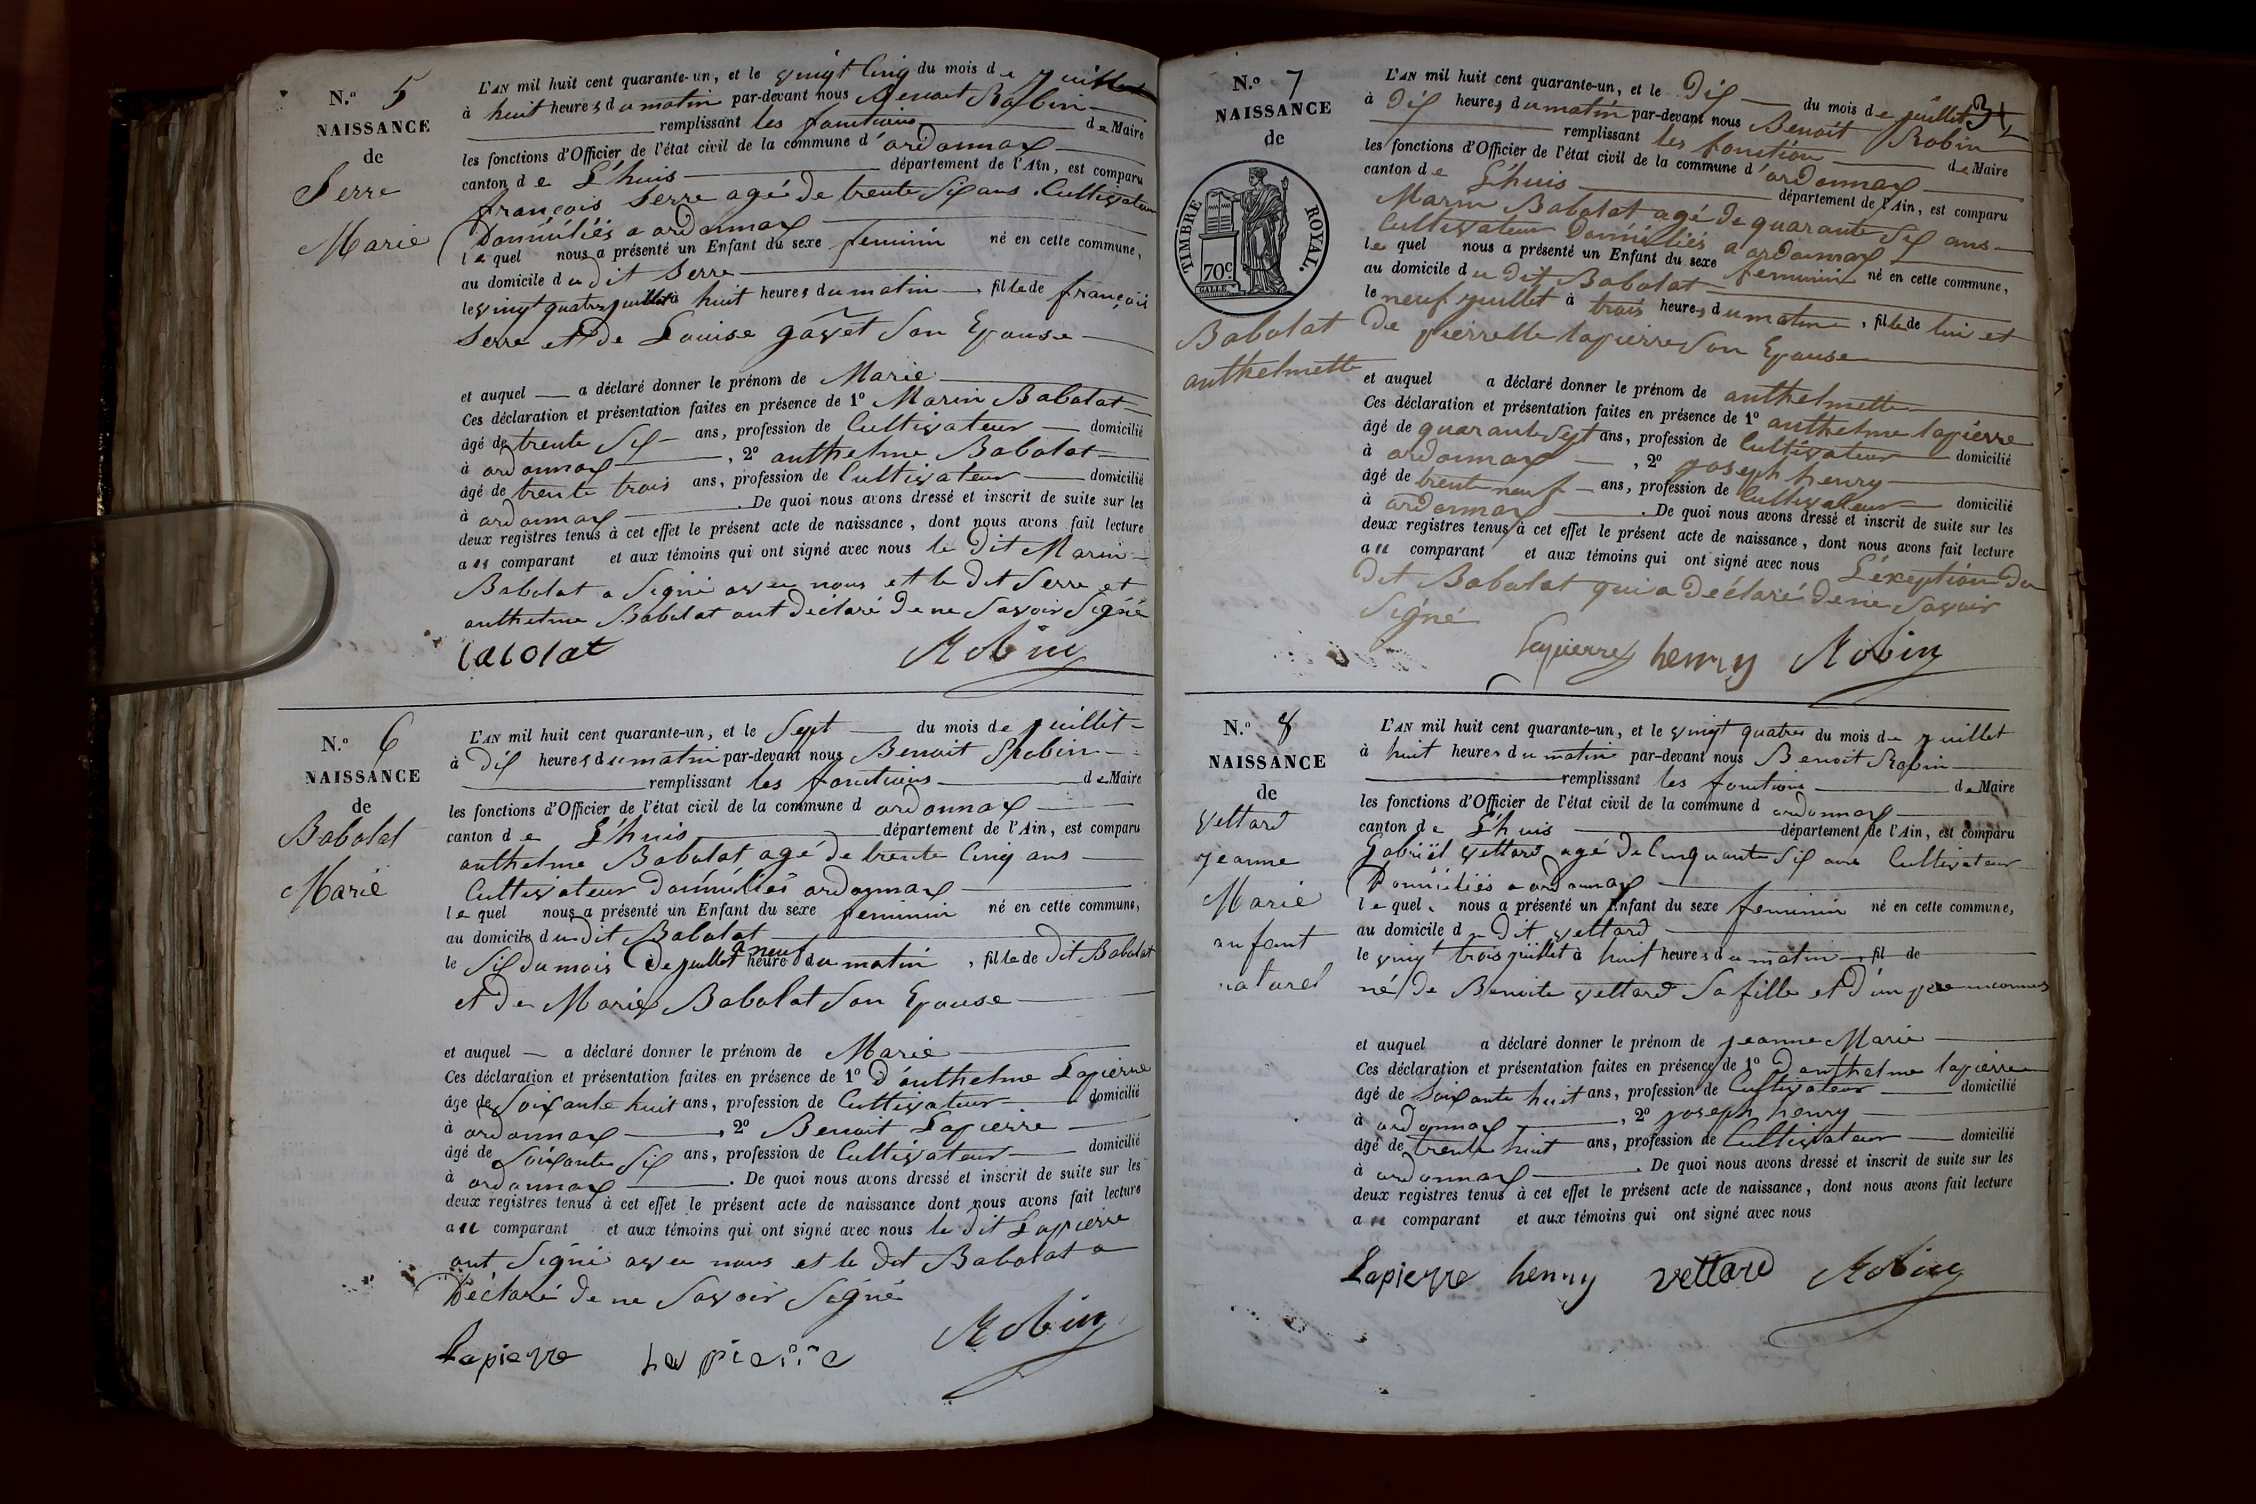 N.° 5
NAISSANCE
de
Serre
Marie
L'AN mil huit cent quarante-un, et le vingt Cinq du mois de juillet
à huit heures du matin par-devant nous Benoit Robin
remplissant les fonctions de Maire
les fonctions d'Officier de l'état civil de la commune d'ordonnax
canton de L'huis département de l'Ain, est comparu
françois Serre agé de trente Six ans Cultivateur
Domiciliés a ordonnax
lequel nous a présenté un Enfant du sexe feminin né en cette commune,
au domicile du dit Serre
le vingt quatre juillet à huit heures du matin, fille de françois
Serre et de Louise gavet Son Epouse
et auquel a déclaré donner le prénom de Marie
Ces déclaration et présentation faites en présence de 1° Marin Babolat
âgé de trente Six ans, profession de Cultivateur domicilié
à ordonnax, 2° anthelme Babolat
âgé de trente trois ans, profession de Cultivateur domicilié
à ordonnax. De quoi nous avons dressé et inscrit de suite sur les
deux registres tenus à cet effet le présent acte de naissance, dont nous avons fait lecture
au comparant et aux témoins qui ont signé avec nous le Dit Marin
Babolat a Signé avec nous et le Dit Serre et
anthelme Babolat ont déclaré de ne Savoir Signé
Robin
N.° 6
NAISSANCE
de
Babolat
Marie
L'AN mil huit cent quarante-un, et le Sept du mois de juillet
à Dix heures du matin par-devant nous Benoit Robin
remplissant les fonctions de Maire
les fonctions d'Officier de l'état civil de la commune d ordonnax
canton de L'huis département de l'Ain, est comparu
anthelme Babolat agé de trente Cinq ans
Cultivateur domiciliés ordonnax
lequel nous a présenté un Enfant du sexe feminin né en cette commune,
au domicile du dit Babolat
le Six du mois De juillet a neuf heure du matin, fille de dit Babolat
et De Marie Babolat Son Epouse
et auquel a déclaré donner le prénom de Marie
Ces déclaration et présentation faites en présence de 1° D'anthelme Lapierre
âgé de Soixante huit ans, profession de Cultivateur domicilié
à ordonnax, 2° Benoit Lapierre
âgé de Soixante Six ans, profession de Cultivateur domicilié
à ordonnax. De quoi nous avons dressé et inscrit de suite sur les
deux registres tenus à cet effet le présent acte de naissance dont nous avons fait lecture
au comparant et aux témoins qui ont signé avec nous le Dit Lapierre
ont Signé avec nous et le Dit Babolat a
Déclaré de ne Savoir Signé
Lapierre Lapierre Robin
31
N.° 7
NAISSANCE
de
TIMBRE ROYAL.
70c
Babolat
anthelmette
L'AN mil huit cent quarante-un, et le Dix du mois de juillet
à Dix heures du matin par-devant nous Benoit Robin
remplissant les fonction de Maire
les fonctions d'Officier de l'état civil de la commune d'ordonnax
canton de L'huis département de l'Ain, est comparu
Marin Babolat agé de quarante Six ans
Cultivateur Domiciliés a ordonnax
lequel nous a présenté un Enfant du sexe feminin né en cette commune,
au domicile du dit Babolat
le neuf juillet à trois heures du matin, fille de lui et
De pierrette lapierre Son Epouse
et auquel a déclaré donner le prénom de anthelmette
Ces déclaration et présentation faites en présence de 1° anthelme lapierre
âgé de quarante Sept ans, profession de Cultivateur domicilié
à ordonnax, 2° joseph henry
âgé de trente neuf ans, profession de Cultivateur domicilié
à ordonnax. De quoi nous avons dressé et inscrit de suite sur les
deux registres tenus à cet effet le présent acte de naissance, dont nous avons fait lecture
au comparant et aux témoins qui ont signé avec nous L'exeption Du
Dit Babolat qui a Déclaré de ne Savoir
Signé
Lapierre henry Robin
N.° 8
NAISSANCE
de
vettard
jeanne
Marie
enfant
naturel
L'AN mil huit cent quarante-un, et le vingt quatre du mois de juillet
à huit heures du matin par-devant nous Benoit Robin
remplissant les fonctions de Maire
les fonctions d'Officier de l'état civil de la commune d ordonnax
canton de L'huis département de l'Ain, est comparu
Gabriël vettard agé de Cinquante Six ans Cultivateur
Domiciliés a ordonnax
lequel nous a présenté un Enfant du sexe feminin né en cette commune,
au domicile d dit vettard
le vingt trois juillet à huit heures du matin, fil de
né De Benoite vettard Sa fille et d'un pere inconnus
et auquel a déclaré donner le prénom de jeanne Marie
Ces déclaration et présentation faites en présence de 1° D'anthelme lapierre
âgé de Soixante huit ans, profession de Cultivateur domicilié
à ordonnax, 2° joseph henry
âgé de trente huit ans, profession de Cultivateur domicilié
à ordonnax. De quoi nous avons dressé et inscrit de suite sur les
deux registres tenus à cet effet le présent acte de naissance, dont nous avons fait lecture
au comparant et aux témoins qui ont signé avec nous
Lapierre henry vettard Robin